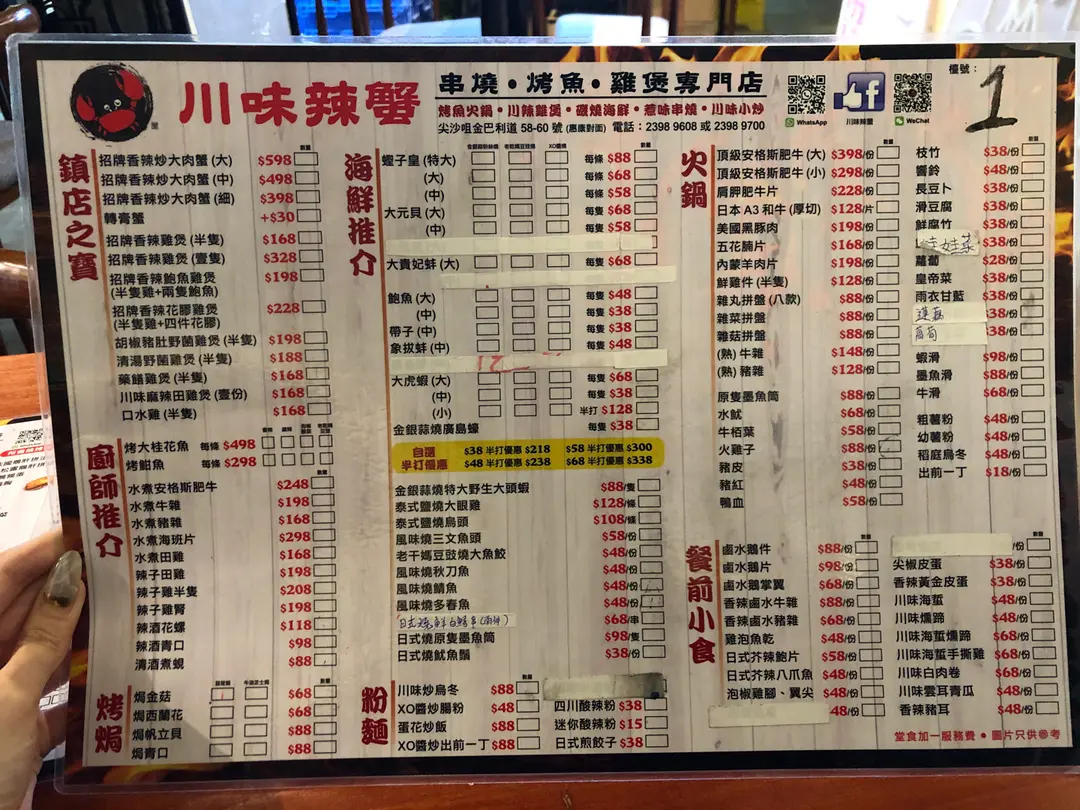 川味辣蟹
串燒・烤魚・雞煲專門店
烤魚火鍋・川辣雞煲・碳燒海鮮・惹味串燒・川味小炒
尖沙咀金巴利道 58-60 號 (惠康對面) 電話：2398 9608 或 2398 9700
WhatsApp
川味辣蟹
WeChat
檯號：1
鎮店之寶
招牌香辣炒大肉蟹 (大) $598
招牌香辣炒大肉蟹 (中) $498
招牌香辣炒大肉蟹 (細) $398
轉膏蟹 +$30
招牌香辣雞煲 (半隻) $168
招牌香辣雞煲 (壹隻) $328
招牌香辣鮑魚雞煲 $198
(半隻雞+兩隻鮑魚)
招牌香辣花膠雞煲 $228
(半隻雞+四件花膠)
胡椒豬肚野菌雞煲 (半隻) $198
清湯野菌雞煲 (半隻) $188
藥膳雞煲 (半隻) $168
川味麻辣田雞煲 (壹份) $168
口水雞 (半隻) $168
廚師推介
烤大桂花魚 每條 $498
烤鮰魚 每條 $298
數量
水煮安格斯肥牛 $248
水煮牛雜 $198
水煮豬雜 $168
水煮海斑片 $298
水煮田雞 $168
辣子田雞 $198
辣子雞半隻 $208
辣子雞腎 $198
辣酒花螺 $118
辣酒青口 $98
清酒煮蜆 $88
烤焗
數量
焗金菇 $68
焗西蘭花 $68
焗帆立貝 $88
焗青口 $88
海鮮推介
金銀蒜粉絲燒 老乾媽豆豉燒 XO醬燒 數量
蟶子皇 (特大) 每條 $88
(大) 每條 $68
(中) 每條 $58
大元貝 (大) 每隻 $68
(中) 每隻 $58
大貴妃蚌 (大) 每隻 $68
鮑魚 (大) 每隻 $48
(中) 每隻 $38
帶子 (中) 每隻 $38
象拔蚌 (中) 每隻 $48
大虎蝦 (大) 每隻 $68
(中) 每隻 $38
(小) 半打 $128
金銀蒜燒廣島蠔 每隻 $38
自選半打優惠
$38 半打優惠 $218 $58 半打優惠 $300
$48 半打優惠 $238 $68 半打優惠 $338
金銀蒜燒特大野生大頭蝦 $88/隻
泰式鹽燒大眼雞 $128/條
泰式鹽燒烏頭 $108/條
風味燒三文魚頭 $58/份
老干媽豆豉燒大魚餃 $48/份
風味燒秋刀魚 $48/份
風味燒鯖魚 $48/份
風味燒多春魚 $48/份
$68/串
日式燒原隻墨魚筒 $98/隻
日式燒魷魚鬚 $38/份
粉麵
川味炒烏冬 $88
XO醬炒腸粉 $48
蛋花炒飯 $88
XO醬炒出前一丁 $88
四川酸辣粉 $38
迷你酸辣粉 $15
日式煎餃子 $38
火鍋
數量
頂級安格斯肥牛 (大) $398/份
頂級安格斯肥牛 (小) $298/份
肩胛肥牛片 $228/份
日本 A3 和牛 (厚切) $128/片
美國黑豚肉 $198/份
五花腩片 $168/份
內蒙羊肉片 $198/份
鮮雞件 (半隻) $128/份
雜丸拼盤 (八款) $88/份
雜菜拼盤 $88/份
雜菇拼盤 $88/份
(熟) 牛雜 $148/份
(熟) 豬雜 $128/份
原隻墨魚筒 $88/份
水魷 $68/份
牛栢葉 $58/份
火雞子 $88/份
豬皮 $38/份
豬紅 $48/份
鴨血 $58/份
數量
枝竹 $38/份
響鈴 $48/份
長豆卜 $38/份
滑豆腐 $38/份
鮮腐竹 $38/份
娃娃菜 $38/份
蘿蔔 $28/份
皇帝菜 $38/份
雨衣甘藍 $38/份
蓮藕 $38/份
萵筍 $38/份
蝦滑 $98/份
墨魚滑 $88/份
牛滑 $88/份
粗薯粉 $48/份
幼薯粉 $48/份
稻庭烏冬 $48/份
出前一丁 $18/份
餐前小食
數量
鹵水鵝件 $88/份
鹵水鵝片 $98/份
鹵水鵝掌翼 $68/份
香辣鹵水牛雜 $88/份
香辣鹵水豬雜 $68/份
雞泡魚乾 $48/份
日式芥辣鮑片 $58/份
日式芥辣八爪魚 $48/份
泡椒雞腳、翼尖 $48/份
$48/份
數量
尖椒皮蛋 $38/份
香辣黃金皮蛋 $38/份
川味海蜇 $48/份
川味燻蹄 $68/份
川味海蜇燻蹄 $48/份
川味海蜇手撕雞 $68/份
川味白肉卷 $68/份
川味雲耳青瓜 $48/份
香辣豬耳 $48/份
堂食加一服務費・圖片只供參考